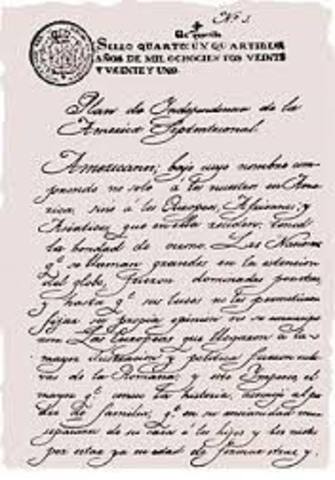 Nº 1.
Un quartillo
SELLO QUARTO: UN QUARTILLO,
AÑOS DE MIL OCHOCIENTOS VEINTE
Y VEINTE Y UNO.
Plan de Independencia de la
America Septentrional.
Americanos; bajo cuyo nombre com-
prendo no solo á los nacidos en Ame-
rica, sino á los Europeos, Africanos y
Asiaticos que en ella residen: tened
la bondad de oirme. Las Naciones
q.e se llaman grandes en la extension
del globo, fueron dominadas por otras,
y hasta q.e sus luces no les permitieron
fijar su propia opinion no se emancipa-
ron. Las Europeas que llegaron á la
mayor ilustracion y politica fueron escla-
vas de la Romana; y este Imperio, el
mayor q.e conoce la historia, asemejó al pa-
dre de familia, q.e en su ancianidad mira
separarse de su casa á los hijos y los nietos
por estar ya en edad de formar otras, y